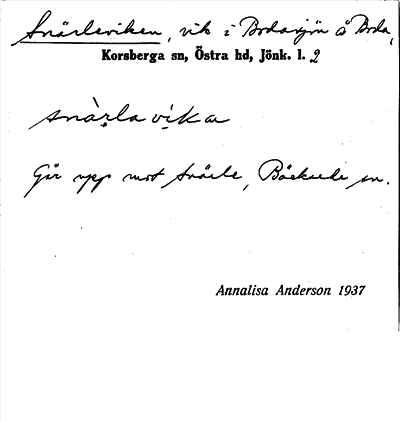 Snärleviken, vik i Bodasjön å Boda,
Korsberga sn, Östra hd, Jönk. l. 2
snàrlavika
Går upp mot Snärle, Bäckseda sn.
Annalisa Anderson 1937